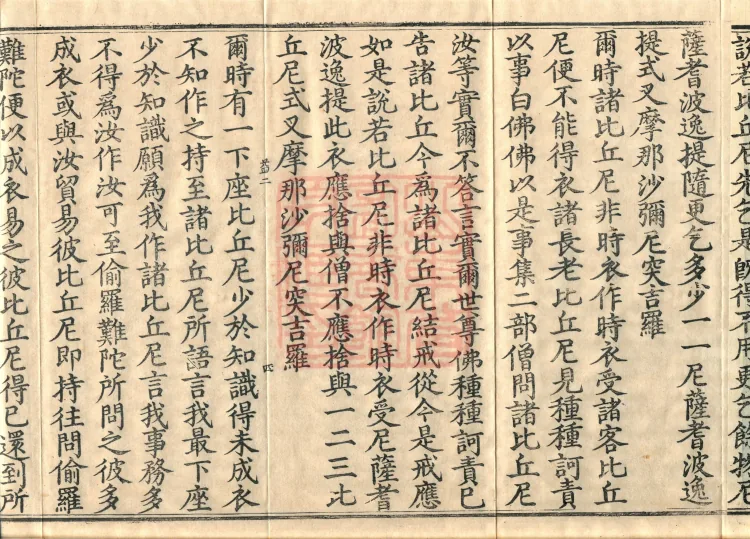 說若比丘尼先乞是既得不用更乞餘物尼
薩耆波逸提隨更乞多少一一尼薩耆波逸
提式叉摩那沙彌尼突吉羅
爾時諸比丘尼非時衣作時衣受諸客比丘
尼便不能得衣諸長老比丘尼見種種訶責
以事白佛佛以是事集二部僧問諸比丘尼
汝等實爾不答言實爾世尊佛種種訶責已
告諸比丘今為諸比丘尼結戒從今是戒應
如是說若比丘尼非時衣作時衣受尼薩耆
波逸提此衣應捨與僧不應捨與一二三比
丘尼式叉摩那沙彌尼突吉羅
益二
四
爾時有一下座比丘尼少於知識得未成衣
不知作之持至諸比丘尼所語言我最下座
少於知識願為我作諸比丘尼言我事務多
不得為汝作汝可至偷羅難陀所問之彼多
成衣或與汝貿易彼比丘尼即持往問偷羅
難陀便以成衣易之彼比丘尼得已還到所